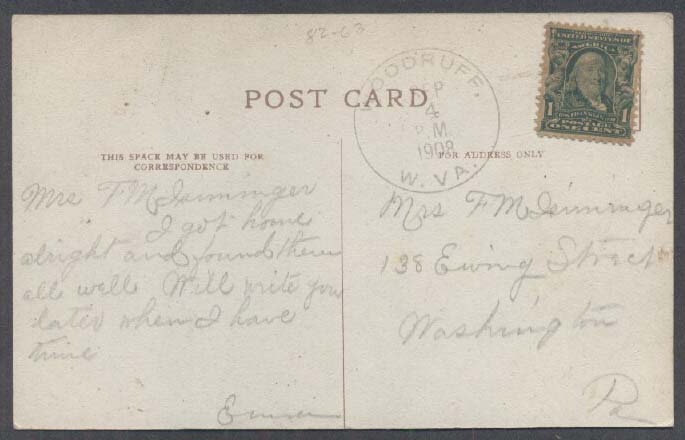 82-63
POST CARD
WOODRUFF,
SEP
4
P.M.
1908
W. VA.
UNITED STATES OF
AMERICA
1 1
POSTAGE
ONE CENT
THIS SPACE MAY BE USED FOR
CORRESPONDENCE
Mrs F M Isiminger
I got home
alright and found them
all well Will write you
later when I have
time
Emma
FOR ADDRESS ONLY
Mrs F M Isiminger
138 Ewing Street
Washington
Pa